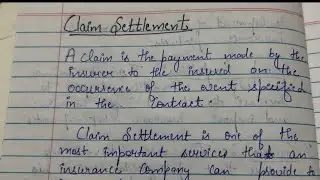 Claim Settlement
A claim is the payment made by the
insurer to the insured on the
occurrence of the event specified
in the contract.
Claim Settlement is one of the
most important services that an
insurance company can provide to